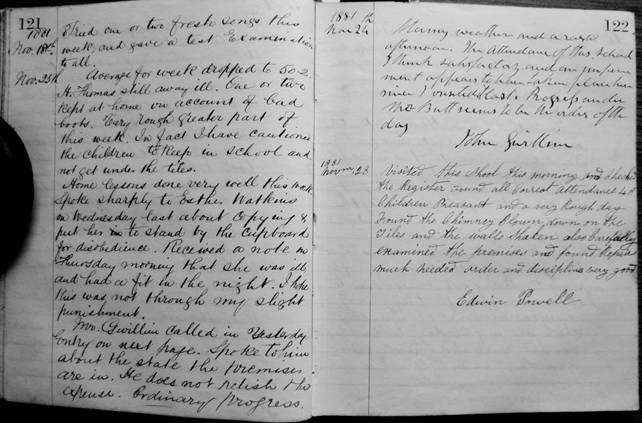 121
1881
Nov. 18th.
Tried one or two fresh songs this
week and gave a test Examination
to all.
Nov. 25th
Average for week dropped to 50.2
H. Thomas still away ill. One or two
kept at home on account of bad
boots. Very rough greater part of
this week. In fact I have cautioned
the children to keep in school and
not get under the tiles.
Home lessons done very well this week
Spoke sharply to Esther Watkins
on Wednesday last about copying &
put her in to stand by the cupboard
for disobedience. Received a note on
Thursday morning that she was ill
and had a fit in the night. I hope
this was not through my slight
punishment.
Mr. Gwillim called in Yesterday
Entry on next page. Spoke to him
about the state the premises
are in. He does not relish the
expense. Ordinary progress.
122
1881
Nov 24th
Stormy weather and a
afternoon. The Attendance of this School
I think satisfactory and an improve
ment appears to have taken place
since I visited last. Progress under
Mr Butt seems to be the order of the
day
John Gwillim
1881
Novm 28
Visited this School this morning and Checked
the Register found all Correct attendance 40
Children Present and a very rough day
Found the Chimney Blown down on the
Tiles and the walls Shaken also Carefully
examined the premises and found Repairs
much needed order and discipline very good
Edwin Powell